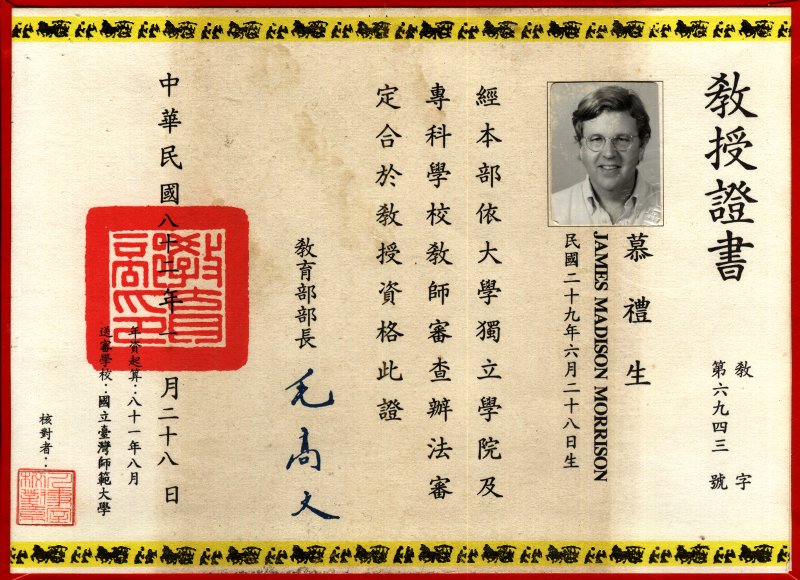 教授證書
教字第六九四三號
慕禮生
JAMES MADISON MORRISON
民國二十九年六月二十八日生
經本部依大學獨立學院及
專科學校教師審查辦法審
定合於教授資格此證
教育部部長
毛高文
中華民國八十二年一月二十八日
年資起算：八十一年八月
送審學校：國立臺灣師範大學
核對者：